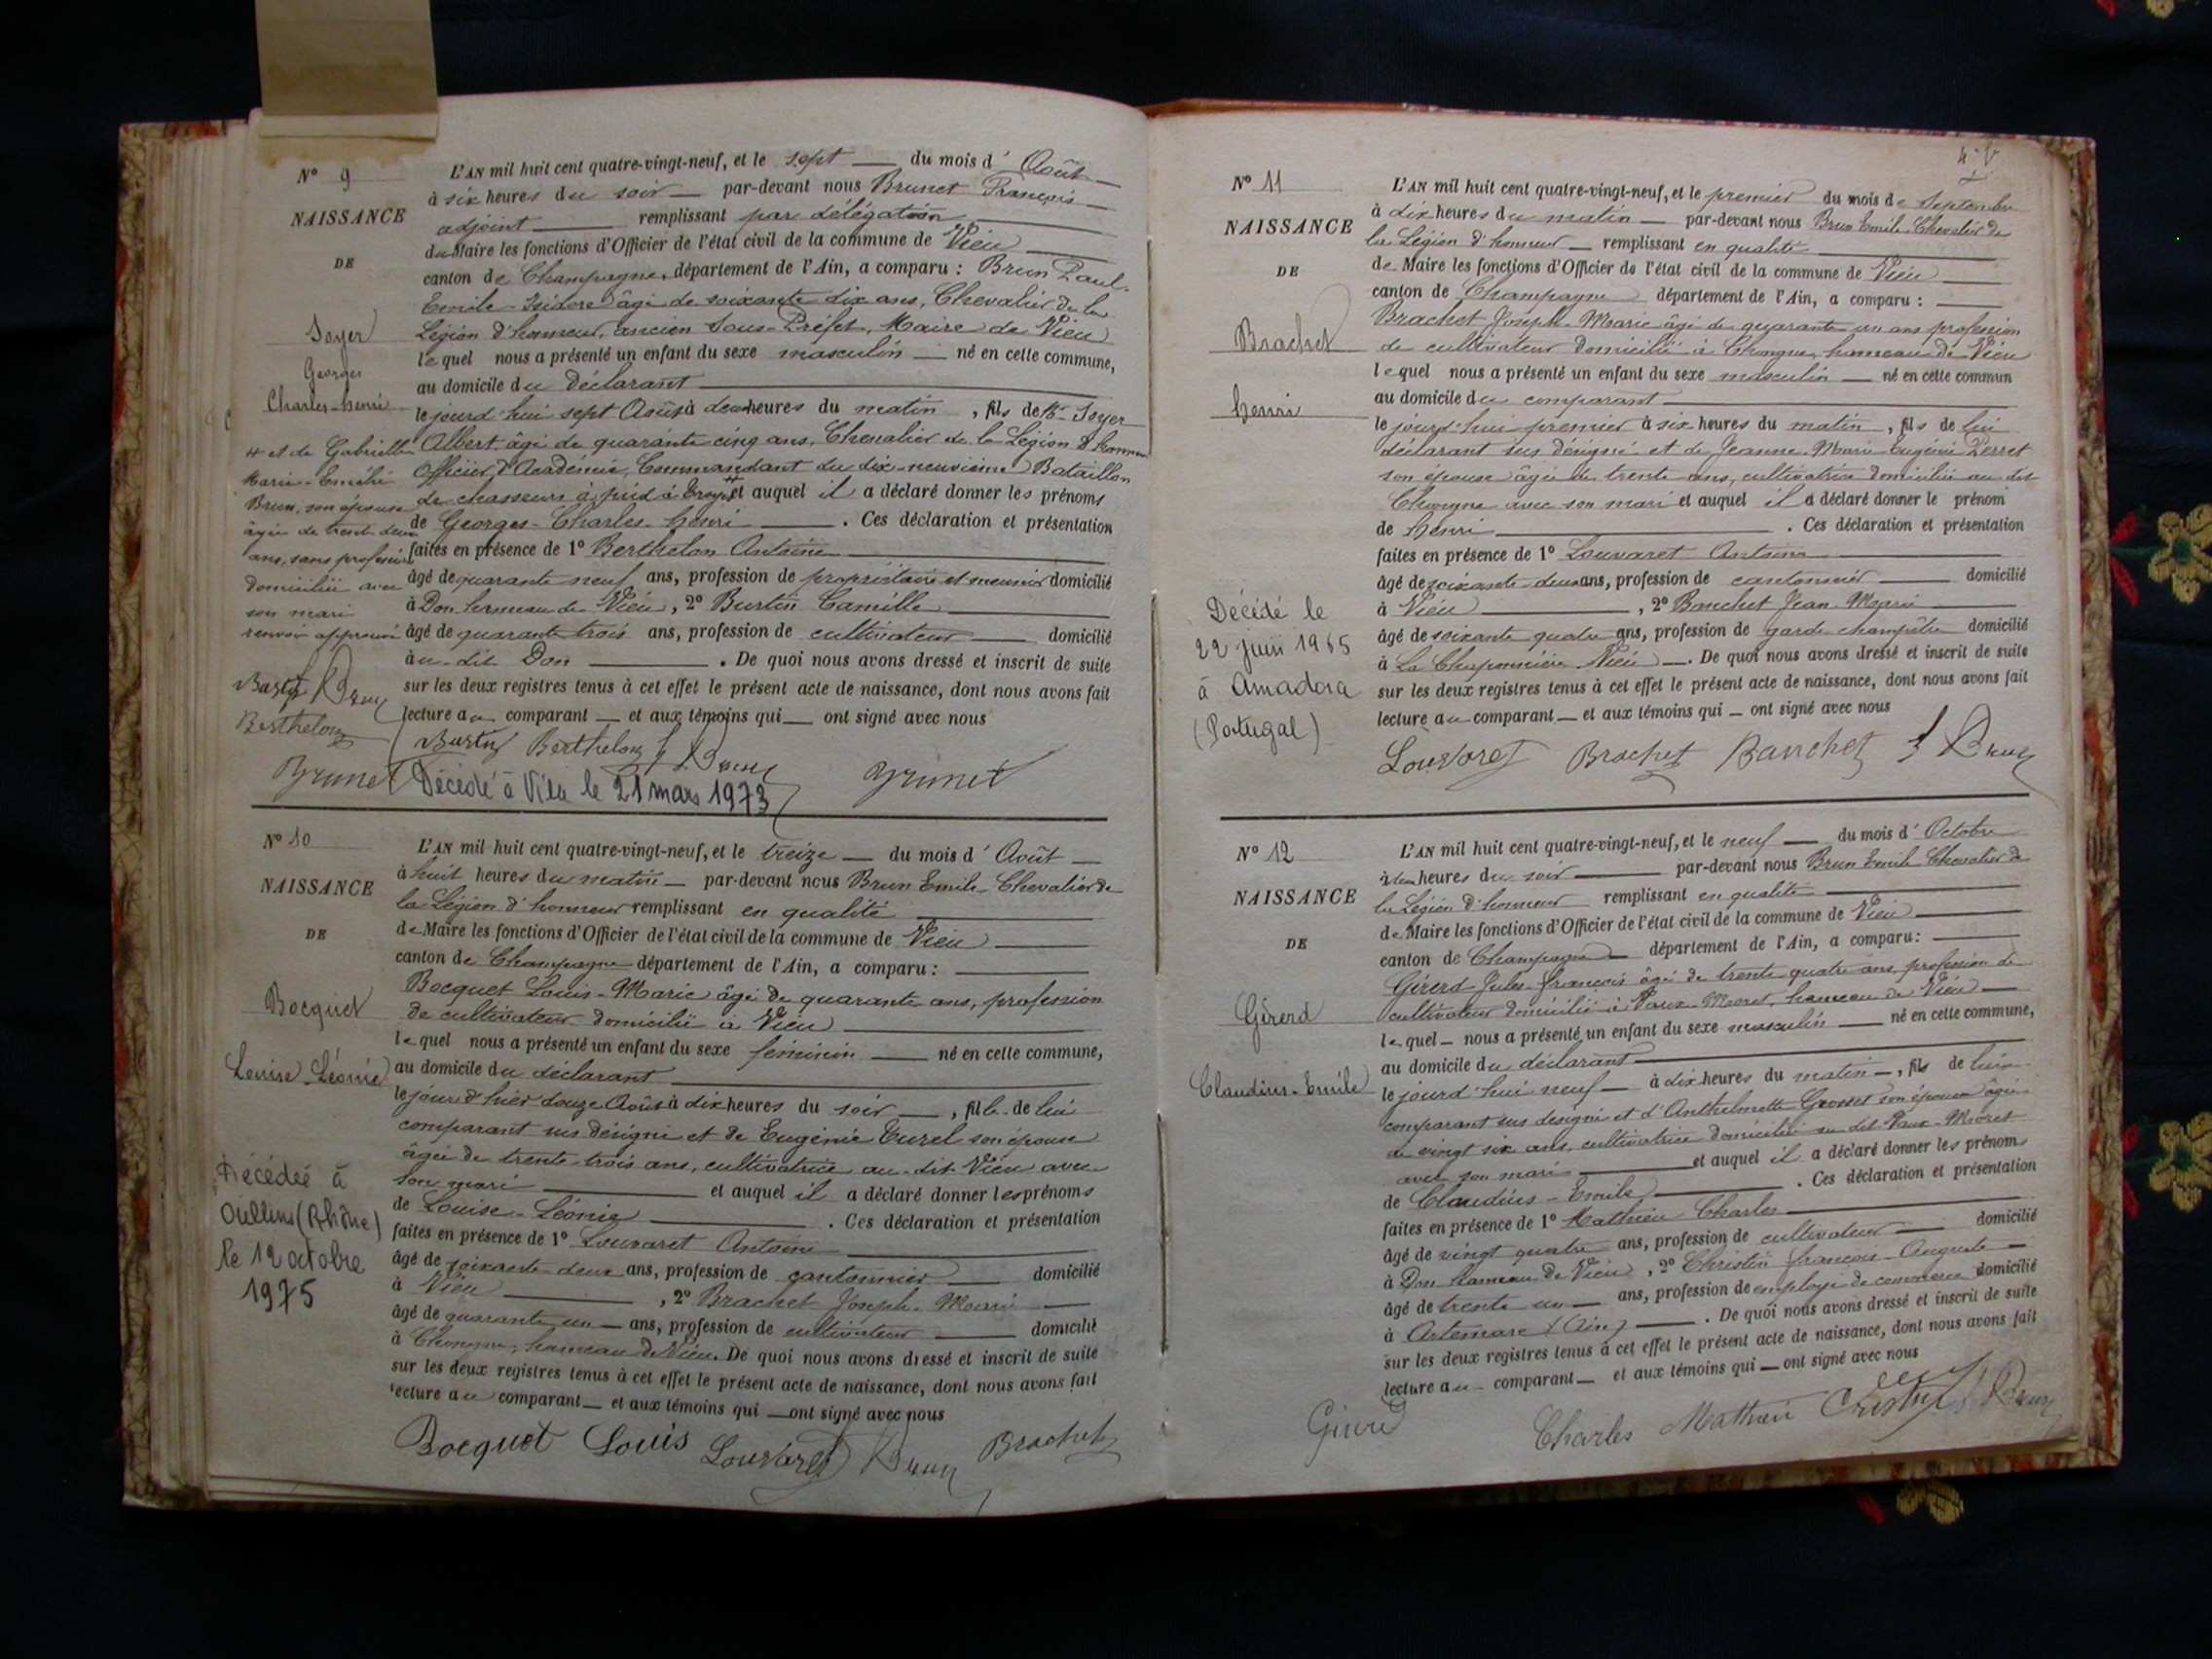 N° 9
NAISSANCE
DE
Soyer
Georges
Charles-henri
L'AN mil huit cent quatre-vingt-neuf, et le sept du mois d'Août
à six heures du soir par-devant nous Brunet François
adjoint remplissant par délégation
du Maire les fonctions d'Officier de l'état civil de la commune de Vieu
canton de Champagne, département de l'Ain, a comparu : Brun Paul-
Emile-Isidore âgé de soixante dix ans, Chevalier de la
Légion d'honneur, ancien Sous-Préfet, Maire de Vieu
lequel nous a présenté un enfant du sexe masculin né en cette commune,
au domicile du déclarant
le jourd'hui sept Août à deux heures du matin, fils de Mr Soyer
Albert âgé de quarante cinq ans, Chevalier de la Légion d'honneur
Officier d'Académie, Commandant du dix-neuvième Bataillon
de chasseurs à pied à Troyes # et auquel il a déclaré donner les prénoms
de Georges-Charles-henri . Ces déclaration et présentation
faites en présence de 1° Berthelon Antoine
âgé de quarante neuf ans, profession de propriétaire et meunier domicilié
à Don hameau de Vieu, 2° Burtin Camille
âgé de quarante trois ans, profession de cultivateur domicilié
au-dit Don . De quoi nous avons dressé et inscrit de suite
sur les deux registres tenus à cet effet le présent acte de naissance, dont nous avons fait
lecture au comparant et aux témoins qui ont signé avec nous
# et de Gabrielle
Marie-Emélie
Brun, son épouse
âgée de trente deux
ans, sans profession
domiciliée avec
son mari
renvoi approuvé
Burtin Brun
Berthelon
Brunet
Burtin Berthelon Brun
Brunet
Décédé à Vieu le 21 mars 1973
N° 10
NAISSANCE
DE
Bocquet
Louise-Léonie
L'AN mil huit cent quatre-vingt-neuf, et le treize du mois d'Août
à huit heures du matin par-devant nous Brun Emile Chevalier de
la Légion d'honneur remplissant en qualité
de Maire les fonctions d'Officier de l'état civil de la commune de Vieu
canton de Champagne département de l'Ain, a comparu :
Bocquet Louis-Marie âgé de quarante ans, profession
de cultivateur domicilié à Vieu
lequel nous a présenté un enfant du sexe féminin né en cette commune,
au domicile du déclarant
le jour d'hier douze Août à dix heures du soir, fille de lui
comparant sus désigné et de Eugénie Turel son épouse
âgée de trente-trois ans, cultivatrice au-dit Vieu avec
son mari et auquel il a déclaré donner les prénoms
de Louise-Léonie . Ces déclaration et présentation
faites en présence de 1° Louvaret Antoine
âgé de soixante deux ans, profession de cantonnier domicilié
à Vieu, 2° Brachet Joseph-Marie
âgé de quarante un ans, profession de cultivateur domicilié
à Chongne, hameau de Vieu. De quoi nous avons dressé et inscrit de suite
sur les deux registres tenus à cet effet le présent acte de naissance, dont nous avons fait
lecture au comparant et aux témoins qui ont signé avec nous
Décédée à
Oullins (Rhône)
le 12 octobre
1975
Bocquet Louis Louvaret Brun Brachet
N° 11
NAISSANCE
DE
Brachet
henri
L'AN mil huit cent quatre-vingt-neuf, et le premier du mois de Septembre
à dix heures du matin par-devant nous Brun Emile Chevalier de
la Légion d'honneur remplissant en qualité
de Maire les fonctions d'Officier de l'état civil de la commune de Vieu
canton de Champagne département de l'Ain, a comparu :
Brachet Joseph-Marie âgé de quarante un ans profession
de cultivateur domicilié à Chongne, hameau de Vieu
lequel nous a présenté un enfant du sexe masculin né en cette commun
au domicile du comparant
le jourd'hui premier à six heures du matin, fils de lui
déclarant sus désigné et de Jeanne-Marie-Eugénie Perret
son épouse âgée de trente ans, cultivatrice domiciliée au dit
Chongne avec son mari et auquel il a déclaré donner le prénom
de henri . Ces déclaration et présentation
faites en présence de 1° Louvaret Antoine
âgé de soixante deux ans, profession de cantonnier domicilié
à Vieu, 2° Banchet Jean-Marie
âgé de soixante quatre ans, profession de garde-champêtre domicilié
à La Chaponnière Vieu. De quoi nous avons dressé et inscrit de suite
sur les deux registres tenus à cet effet le présent acte de naissance, dont nous avons fait
lecture au comparant et aux témoins qui ont signé avec nous
Décédé le
22 juin 1965
à Amadora
(Portugal)
Louvaret Brachet Banchet Brun
N° 12
NAISSANCE
DE
Gérerd
Claudius-Emile
L'AN mil huit cent quatre-vingt-neuf, et le neuf du mois d'Octobre
heures du soir par-devant nous Brun Emile Chevalier de
la Légion d'honneur remplissant en qualité
de Maire les fonctions d'Officier de l'état civil de la commune de Vieu
canton de Champagne département de l'Ain, a comparu :
Gérerd Jules-françois âgé de trente quatre ans profession de
cultivateur domicilié à Vaux-Moret, hameau de Vieu
lequel nous a présenté un enfant du sexe masculin né en cette commune,
au domicile du déclarant
le jourd'hui neuf à dix heures du matin, fils de lui
comparant sus désigné et d'Anthelmette Grosset son épouse âgée
de vingt six ans, cultivatrice domiciliée au dit Vaux-Moret
avec son mari et auquel il a déclaré donner les prénoms
de Claudius-Emile . Ces déclaration et présentation
faites en présence de 1° Mathieu Charles
âgé de vingt quatre ans, profession de cultivateur domicilié
à Don hameau de Vieu, 2° Christin françois-Auguste
âgé de trente un ans, profession de employé de commerce domicilié
à Artemare (Ain). De quoi nous avons dressé et inscrit de suite
sur les deux registres tenus à cet effet le présent acte de naissance, dont nous avons fait
lecture au comparant et aux témoins qui ont signé avec nous
Charles Mathieu Christin Brun